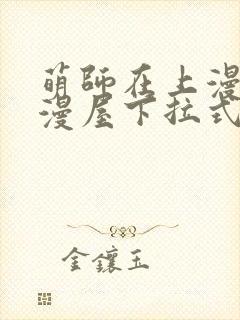 萌師在上漫
漫屋下拉式
金鑲玉